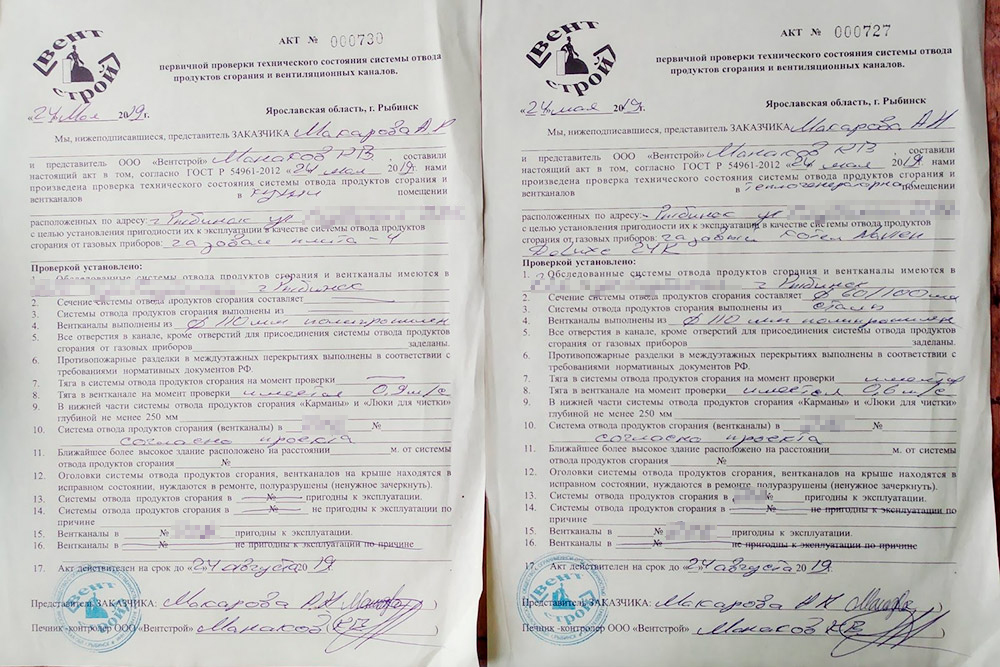 Вент
строй
АКТ № 000730
первичной проверки технического состояния системы отвода
продуктов сгорания и вентиляционных каналов.
«24» мая 2019г.
Ярославская область, г. Рыбинск
Мы, нижеподписавшиеся, представитель ЗАКАЗЧИКА Макарова А.Н
и представитель ООО «Вентстрой» Манаков , составили
настоящий акт в том, согласно ГОСТ Р 54961-2012 «24 мая 2019г. нами
произведена проверка технического состояния системы отвода продуктов сгорания и
вентканалов в кухни помещении
расположенных по адресу: г Рыбинск ул
с целью установления пригодности их к эксплуатации в качестве системы отвода продуктов
сгорания от газовых приборов: газовая плита - 4
Проверкой установлено:
1. Обследованные системы отвода продуктов сгорания и вентканалы имеются в
г Рыбинск
2. Сечение системы отвода продуктов сгорания составляет
3. Системы отвода продуктов сгорания выполнены из
4. Вентканалы выполнены из ф 110 мм полипропилен
5. Все отверстия в канале, кроме отверстий для присоединения системы отвода продуктов
сгорания от газовых приборов заделаны.
6. Противопожарные разделки в междуэтажных перекрытиях выполнены в соответствии с
требованиями нормативных документов РФ.
7. Тяга в системы отвода продуктов сгорания на момент проверки —
8. Тяга в вентканале на момент проверки имеется 0,9 м/с
9. В нижней части системы отвода продуктов сгорания «Карманы» и «Люки для чистки»
глубиной не менее 250 мм
10. Система отвода продуктов сгорания (вентканалы) в №
согласно проекта
11. Ближайшее более высокое здание расположено на расстоянии м. от системы
отвода продуктов сгорания №
12. Оголовки системы отвода продуктов сгорания, вентканалов на крыше находятся в
исправном состоянии, нуждаются в ремонте, полуразрушены (ненужное зачеркнуть).
13. Системы отвода продуктов сгорания в № пригодны к эксплуатации.
14. Системы отвода продуктов сгорания в № не пригодны к эксплуатации по
причине
15. Вентканалы в № пригодны к эксплуатации.
16. Вентканалы в № не пригодны к эксплуатации по причине
17. Акт действителен на срок до «24 августа 2019
Представитель ЗАКАЗЧИКА: Макарова А Н
Печник -контролер ООО «Вентстрой» Манаков
Вент
строй
АКТ № 000727
первичной проверки технического состояния системы отвода
продуктов сгорания и вентиляционных каналов.
«24 мая 2019г.
Ярославская область, г. Рыбинск
Мы, нижеподписавшиеся, представитель ЗАКАЗЧИКА Макарова А Н
и представитель ООО «Вентстрой» Манаков , составили
настоящий акт в том, согласно ГОСТ Р 54961-2012 «24 мая 2019г. нами
произведена проверка технического состояния системы отвода продуктов сгорания и
вентканалов в теплогенераторная помещении
расположенных по адресу: г Рыбинск ул
с целью установления пригодности их к эксплуатации в качестве системы отвода продуктов
сгорания от газовых приборов: газовый котел
Deluxe 24К
Проверкой установлено:
1. Обследованные системы отвода продуктов сгорания и вентканалы имеются в
г Рыбинск
2. Сечение системы отвода продуктов сгорания составляет ф 60/100 мм
3. Системы отвода продуктов сгорания выполнены из сталь
4. Вентканалы выполнены из ф 110 мм полипропилен
5. Все отверстия в канале, кроме отверстий для присоединения системы отвода продуктов
сгорания от газовых приборов заделаны.
6. Противопожарные разделки в междуэтажных перекрытиях выполнены в соответствии с
требованиями нормативных документов РФ.
7. Тяга в системы отвода продуктов сгорания на момент проверки имеется
8. Тяга в вентканале на момент проверки имеется 0,6 м/с
9. В нижней части системы отвода продуктов сгорания «Карманы» и «Люки для чистки»
глубиной не менее 250 мм
10. Система отвода продуктов сгорания (вентканалы) в №
согласно проекта
11. Ближайшее более высокое здание расположено на расстоянии м. от системы
отвода продуктов сгорания №
12. Оголовки системы отвода продуктов сгорания, вентканалов на крыше находятся в
исправном состоянии, нуждаются в ремонте, полуразрушены (ненужное зачеркнуть).
13. Системы отвода продуктов сгорания в № пригодны к эксплуатации.
14. Системы отвода продуктов сгорания в № не пригодны к эксплуатации по
причине
15. Вентканалы в № пригодны к эксплуатации.
16. Вентканалы в № не пригодны к эксплуатации по причине
17. Акт действителен на срок до «24 августа 2019.
Представитель ЗАКАЗЧИКА: Макарова А Н
Печник -контролер ООО «Вентстрой» Манаков